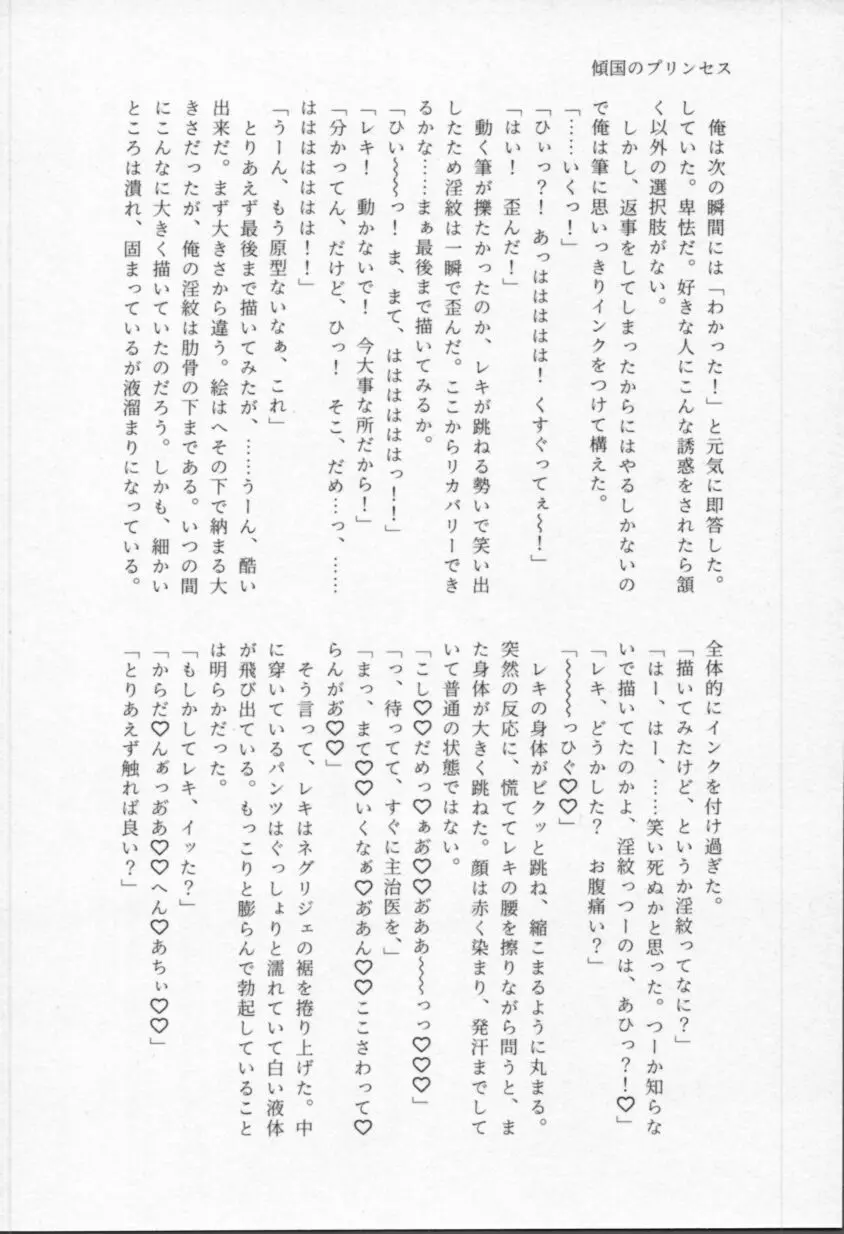 傾国のプリンセス
　俺は次の瞬間には「わかった！」と元気に即答した。
していた。卑怯だ。好きな人にこんな誘惑をされたら頷
く以外の選択肢がない。
　しかし、返事をしてしまったからにはやるしかないの
で俺は筆に思いっきりインクをつけて構えた。
「……いくっ！」
「ひぃっ？！　あっはははは！くすぐってぇ〜！」
「はい！　歪んだ！」
　動く筆が擽たかったのか、レキが跳ねる勢いで笑い出
したため淫紋は一瞬で歪んだ。ここからリカバリーでき
るかな……まぁ最後まで描いてみるか。
「ひぃ〜〜っ！　ま、まて、はははははっ！！」
「レキ！　動かないで！　今大事な所だから！」
「分かってん、だけど、ひっ！　そこ、だめ…っ、……
はははははは！！」
「うーん、もう原型ないなぁ、これ」
　とりあえず最後まで描いてみたが、……うーん、酷い
出来だ。まず大きさから違う。絵はへその下で納まる大
きさだったが、俺の淫紋は肋骨の下まである。いつの間
にこんなに大きく描いていたのだろう。しかも、細かい
ところは潰れ、固まっているが液溜まりになっている。
全体的にインクを付け過ぎた。
「描いてみたけど、というか淫紋ってなに？」
「はー、はー、……笑い死ぬかと思った。つーか知らな
いで描いてたのかよ、淫紋っつーのは、あひっ？！♡」
「レキ、どうかした？　お腹痛い？」
「〜〜〜〜っひぐ♡♡」
　レキの身体がビクッと跳ね、縮こまるように丸まる。
突然の反応に、慌ててレキの腰を擦りながら問うと、ま
た身体が大きく跳ねた。顔は赤く染まり、発汗までして
いて普通の状態ではない。
「こし♡♡だめっ♡ぁあ゙♡♡あ゙ああ〜〜〜っっ♡♡♡」
「っ、待ってて、すぐに主治医を、」
「まっ、まて♡♡いくなぁ♡あ゙あん♡♡ここさわって♡
らんがあ゙♡♡」
　そう言って、レキはネグリジェの裾を捲り上げた。中
に穿いているパンツはぐっしょりと濡れていて白い液体
が飛び出ている。もっこりと膨らんで勃起していること
は明らかだった。
「もしかしてレキ、イッた？」
「からだ♡んぁ゙っあ゙あ♡♡へん♡あちぃ♡♡」
「とりあえず触れば良い？」